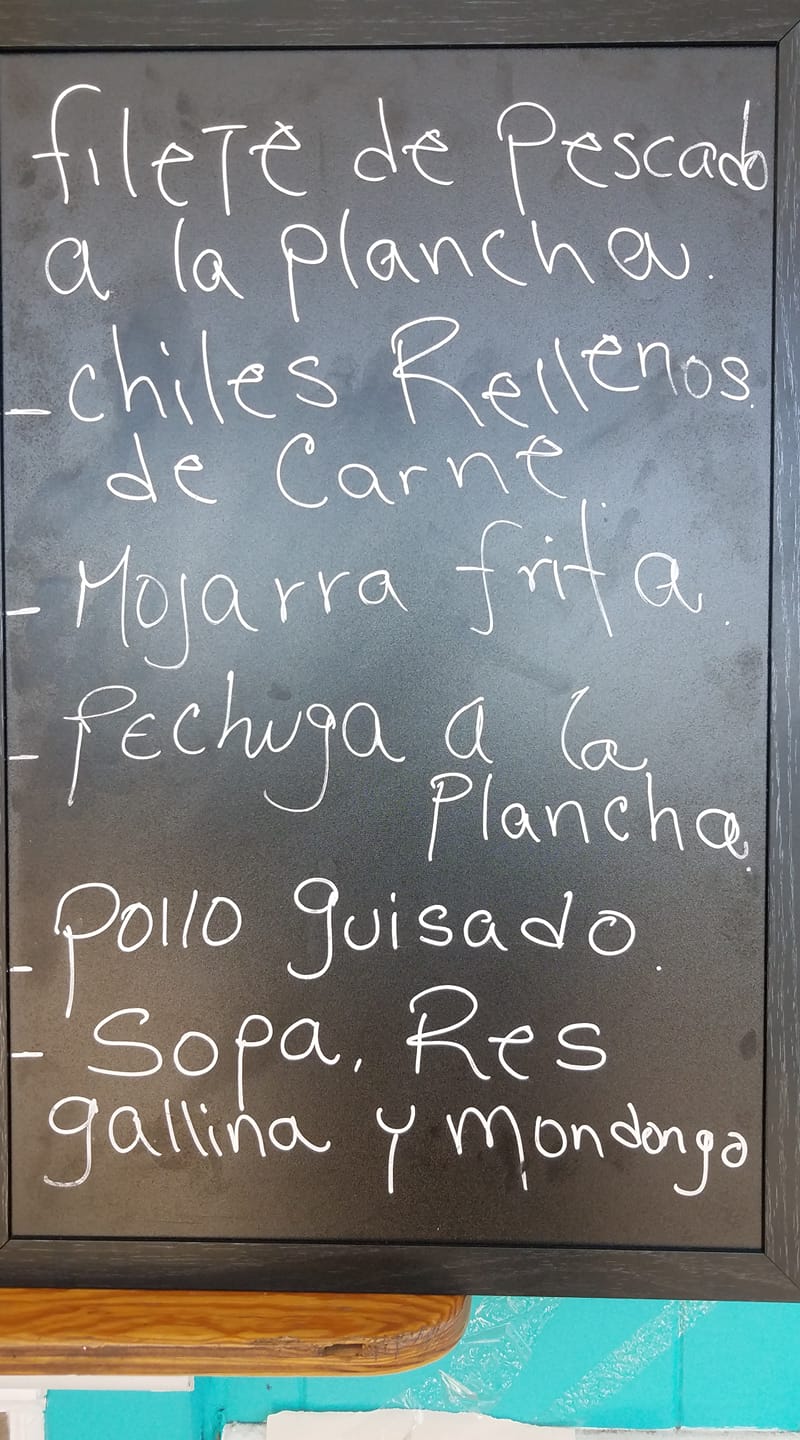 fileTe de Pescado
a la plancha.
- chiles Rellenos.
de Carne.
- Mojarra frita.
- Pechuga a la
Plancha.
- pollo guisado.
- Sopa, Res
gallina y mondongo